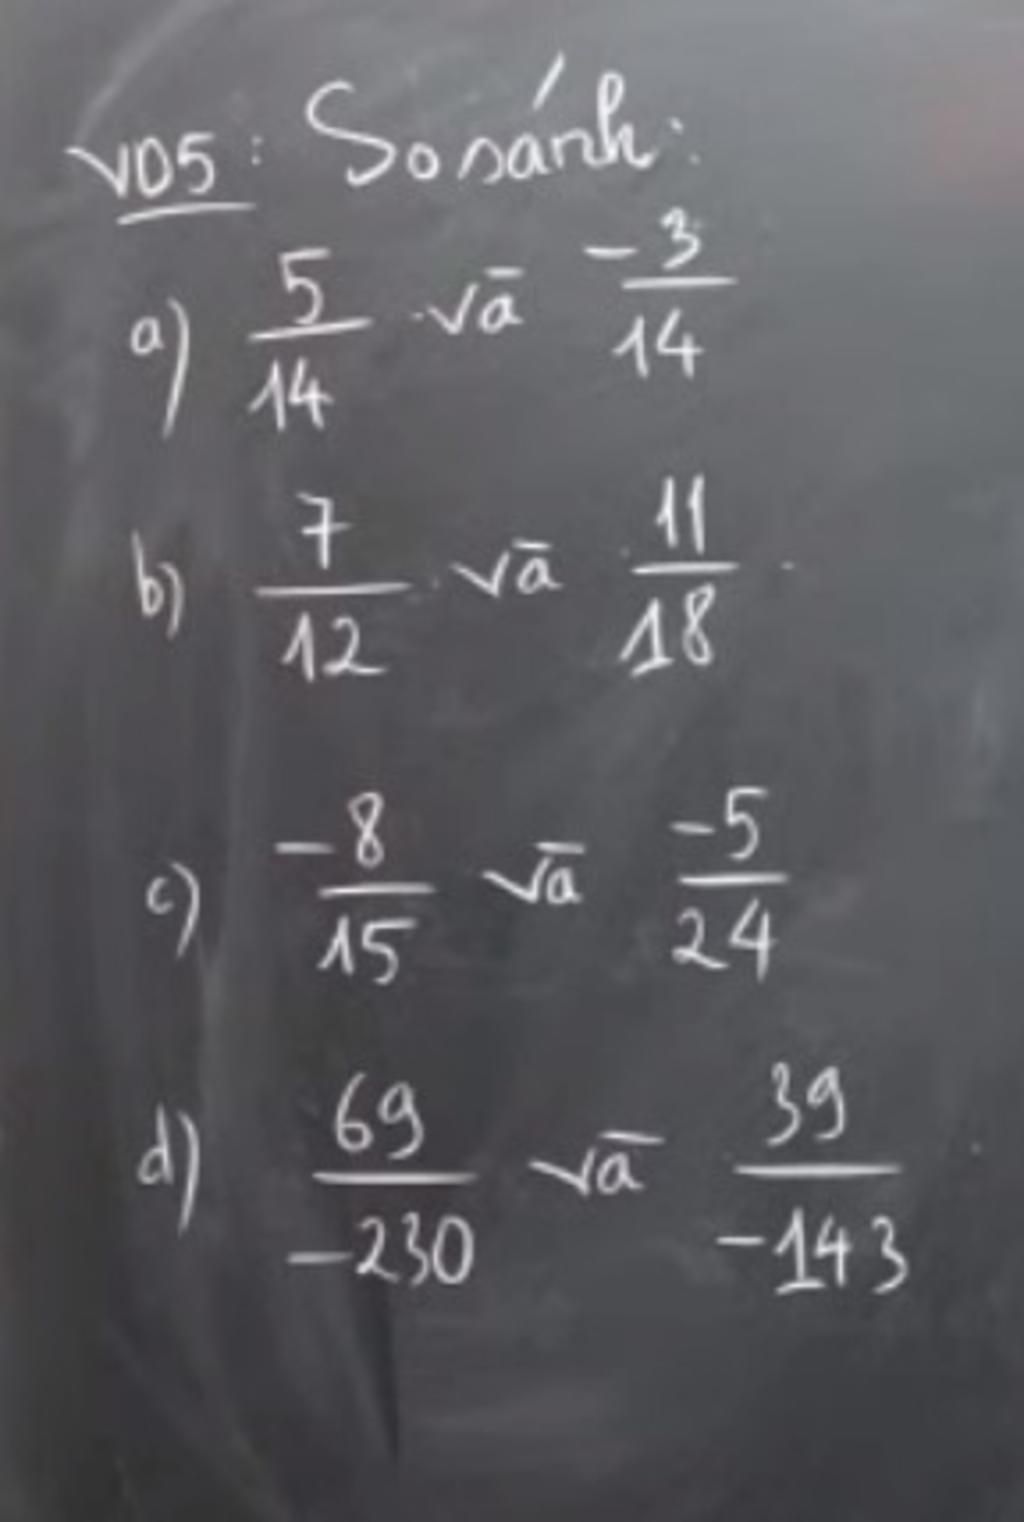 VD5: So sánh:
a) 5/14 và -3/14
b) 7/12 và 11/18
c) -8/15 và -5/24
d) 69/-230 và 39/-143